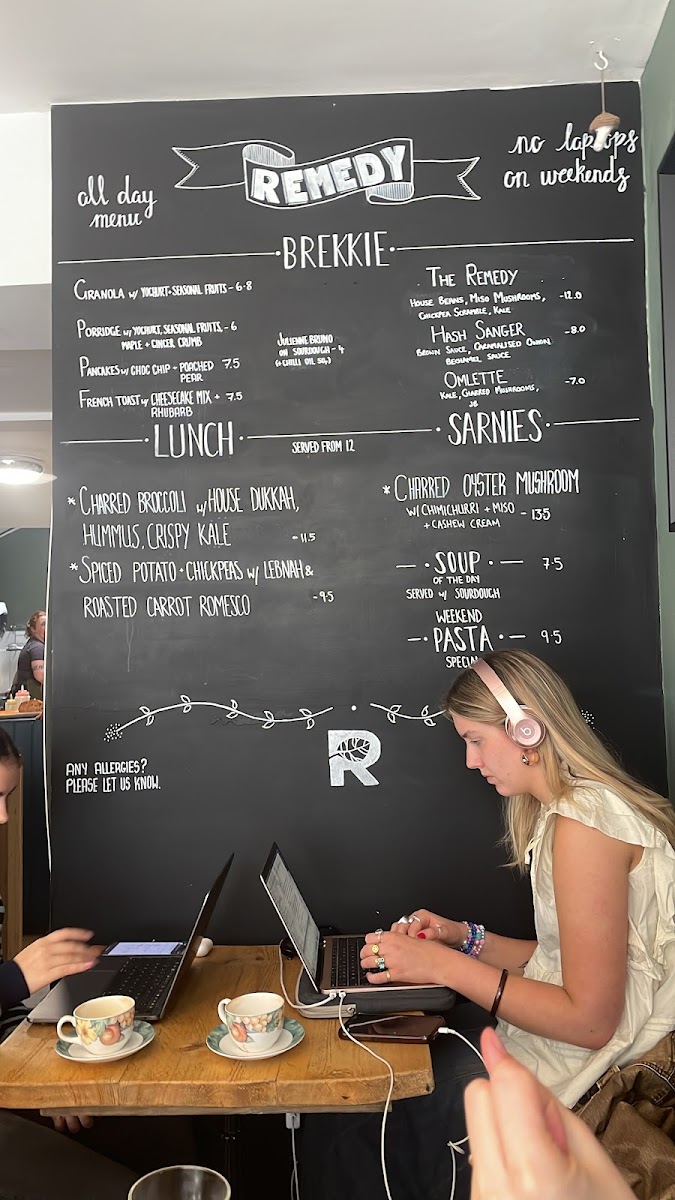 all day
menu
REMEDY
no laptops
on weekends
BREKKIE
GRANOLA w/ YOGHURT + SEASONAL FRUITS - 6.8
PORRIDGE w/ YOGHURT, SEASONAL FRUITS, - 6
MAPLE + GINGER CRUMB
PANCAKES w/ CHOC CHIP + POACHED 7.5
PEAR
FRENCH TOAST w/ CHEESECAKE MIX + 7.5
RHUBARB
JULIENNE BRUNO
ON SOURDOUGH - 4
(+ CHILLI OIL 50p)
THE REMEDY
HOUSE BEANS, MISO MUSHROOMS, - 12.0
CHICKPEA SCRAMBLE, KALE
HASH SANGER - 8.0
BROWN SAUCE, CARAMALISED ONION
BECHAMEL SAUCE
OMLETTE - 7.0
KALE, CHARRED MUSHROOMS,
LUNCH
SERVED FROM 12
SARNIES
* CHARRED BROCCOLI w/ HOUSE DUKKAH,
HUMMUS, CRISPY KALE - 11.5
* SPICED POTATO + CHICKPEAS w/ LEBNAH &
ROASTED CARROT ROMESCO - 9.5
* CHARRED OYSTER MUSHROOM
W/ CHIMICHURRI + MISO - 13.5
+ CASHEW CREAM
SOUP 7.5
OF THE DAY
SERVED W/ SOURDOUGH
WEEKEND
PASTA 9.5
SPECIAL
R
ANY ALLERGIES?
PLEASE LET US KNOW.
b